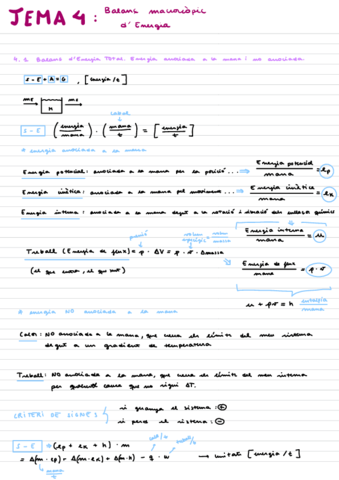 TEMA 4: Balanç macroscòpic
d'Energia
4.1 Balanç d'Energia TOTAL. Energia associada a la massa i no associada.
S - E + A = G , [energia/t]
ṁE → M → ṁS
cabal
S - E (energia/massa) · (massa/t) = [energia/t]
* energia associada a la massa
Energia potencial: associada a la massa per sa posició... ⇒ Energia potencial/massa = êp
Energia cinètica: associada a la massa pel moviment... ⇒ Energia cinètica/massa = êk
Energia interna: associada a la massa degut a la rotació i vibració dels enllaços químics
Energia interna/massa = û
pressió
volum específic = volum/massa
Treball (Energia de flux) = p · ΔV = p · v̂ · Δmassa
(el que entra, el que surt)
Energia de flux/massa = p · v̂
u + pv̂ = h entalpia/massa
* energia NO associada a la massa
Calor: NO associada a la massa, que creua els límits del meu sistema
degut a un gradient de temperatura
Treball: NO associada a la massa, que creua els límits del meu sistema
per qualsevol causa que no sigui ΔT.
CRITERI DE SIGNES
si guanya el sistema: +
si perd el sistema: -
S - E (ep + ek + h) · m
calor/t
treball/t
= Δ(m · ep) + Δ(m · ek) + Δ(m · h) - q - w → unitat [energia/t]
massa/t